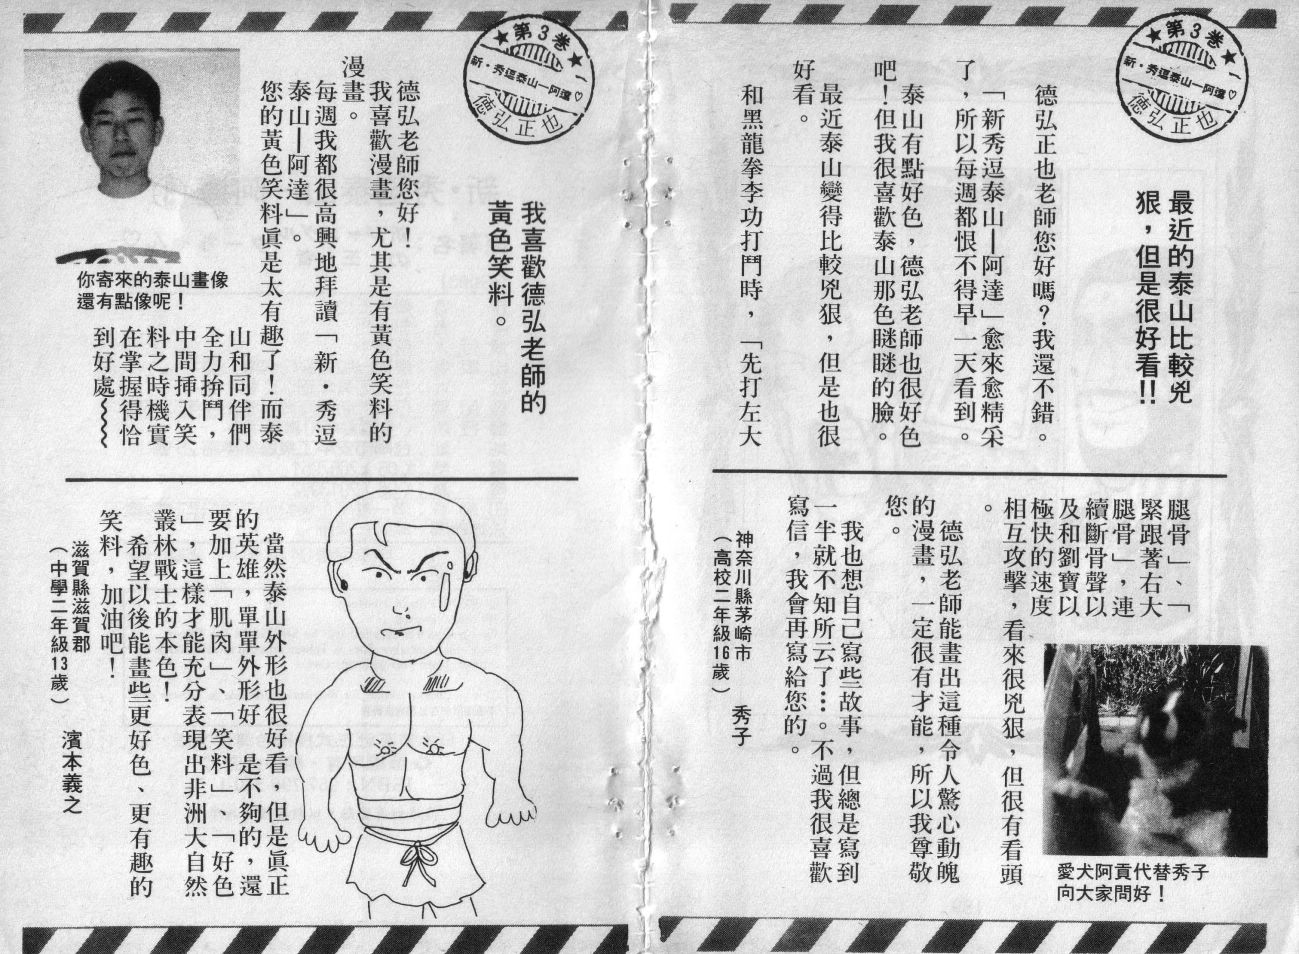 ★第3卷★
新・秀逗泰山—阿達♡
德弘正也
最近的泰山比較兇
狠，但是很好看!!
德弘正也老師您好嗎？我還不錯。
「新秀逗泰山—阿達」愈來愈精采
了，所以每週都恨不得早一天看到。
泰山有點好色，德弘老師也很好色
吧！但我很喜歡泰山那色瞇瞇的臉。
最近泰山變得比較兇狠，但是也很
好看。
和黑龍拳李功打鬥時，「先打左大
腿骨」、「
緊跟著右大
腿骨」，連
續斷骨聲以
及和劉寶以
極快的速度
相互攻擊，看來很兇狠，但很有看頭
。
德弘老師能畫出這種令人驚心動魄
的漫畫，一定很有才能，所以我尊敬
您。
我也想自己寫些故事，但總是寫到
一半就不知所云了…。不過我很喜歡
寫信，我會再寫給您的。
神奈川縣茅崎市　秀子
（高校二年級16歲）
愛犬阿貢代替秀子
向大家問好！
★第3卷★
新・秀逗泰山—阿達♡
德弘正也
我喜歡德弘老師的
黃色笑料。
德弘老師您好！
我喜歡漫畫，尤其是有黃色笑料的
漫畫。
每週我都很高興地拜讀「新・秀逗
泰山—阿達」。
您的黃色笑料眞是太有趣了！而泰
山和同伴們
全力拚鬥，
中間揷入笑
料之時機實
在掌握得恰
到好處～～
你寄來的泰山畫像
還有點像呢！
當然泰山外形也很好看，但是眞正
的英雄，單單外形好　是不夠的，還
要加上「肌肉」、「笑料」、「好色
」，這樣才能充分表現出非洲大自然
叢林戰士的本色！
希望以後能畫些更好色、更有趣的
笑料，加油吧！
滋賀縣滋賀郡　濱本義之
（中學二年級13歲）